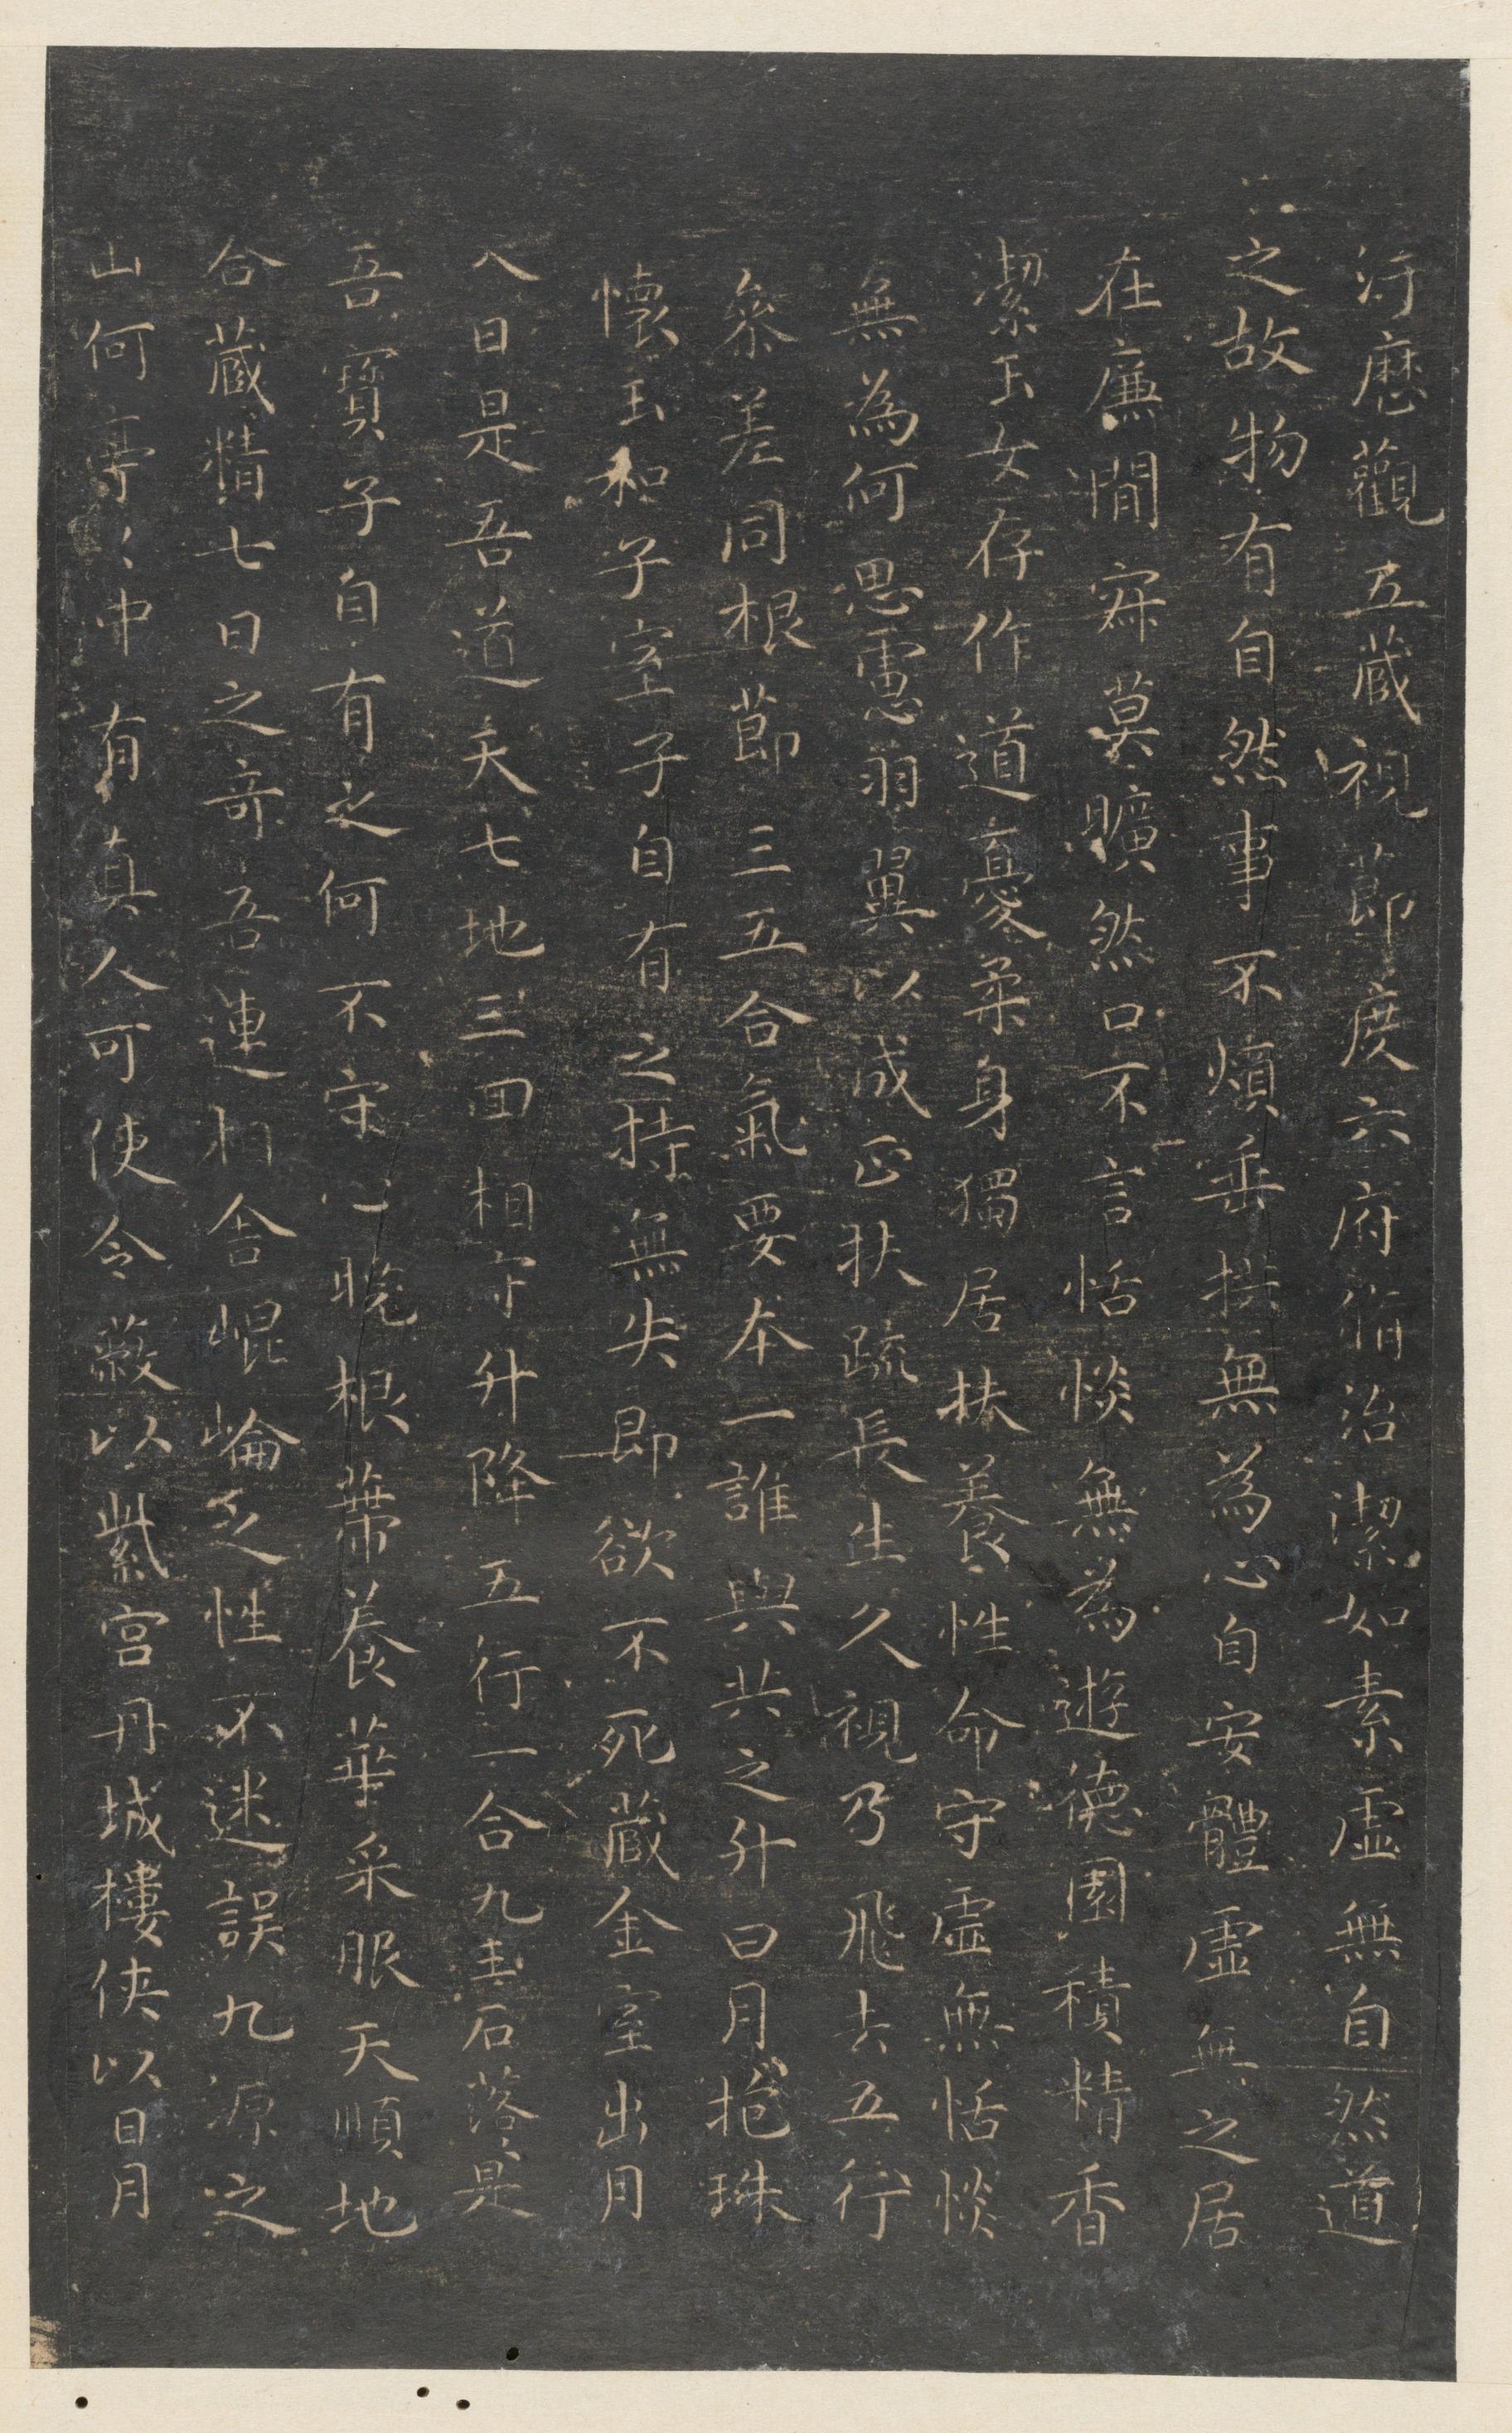 汙歷觀五藏視節度六府脩治潔如素虛無自然道
之故物有自然事不煩垂拱無為心自安體虛無之居
在廉間寂莫曠然口不言恬惔無為遊德園積精香
潔玉女存作道憂柔身獨居扶養性命守虛無恬惔
無為何思慮羽翼以成正扶疏長生久視乃飛去五行
參差同根節三五合氣要本一誰與共之升日月抱珠
懷玉和子室子自有之持無失即欲不死藏金室出月
入日是吾道天七地三回相守升降五行一合九玉石落是
吾寶子自有之何不守心曉根蔕養華采服天順地
合藏精七日之奇吾連相舍崐崘之性不迷誤九源之
山何亭〻中有真人可使令蔽以紫宮丹城樓俠以日月